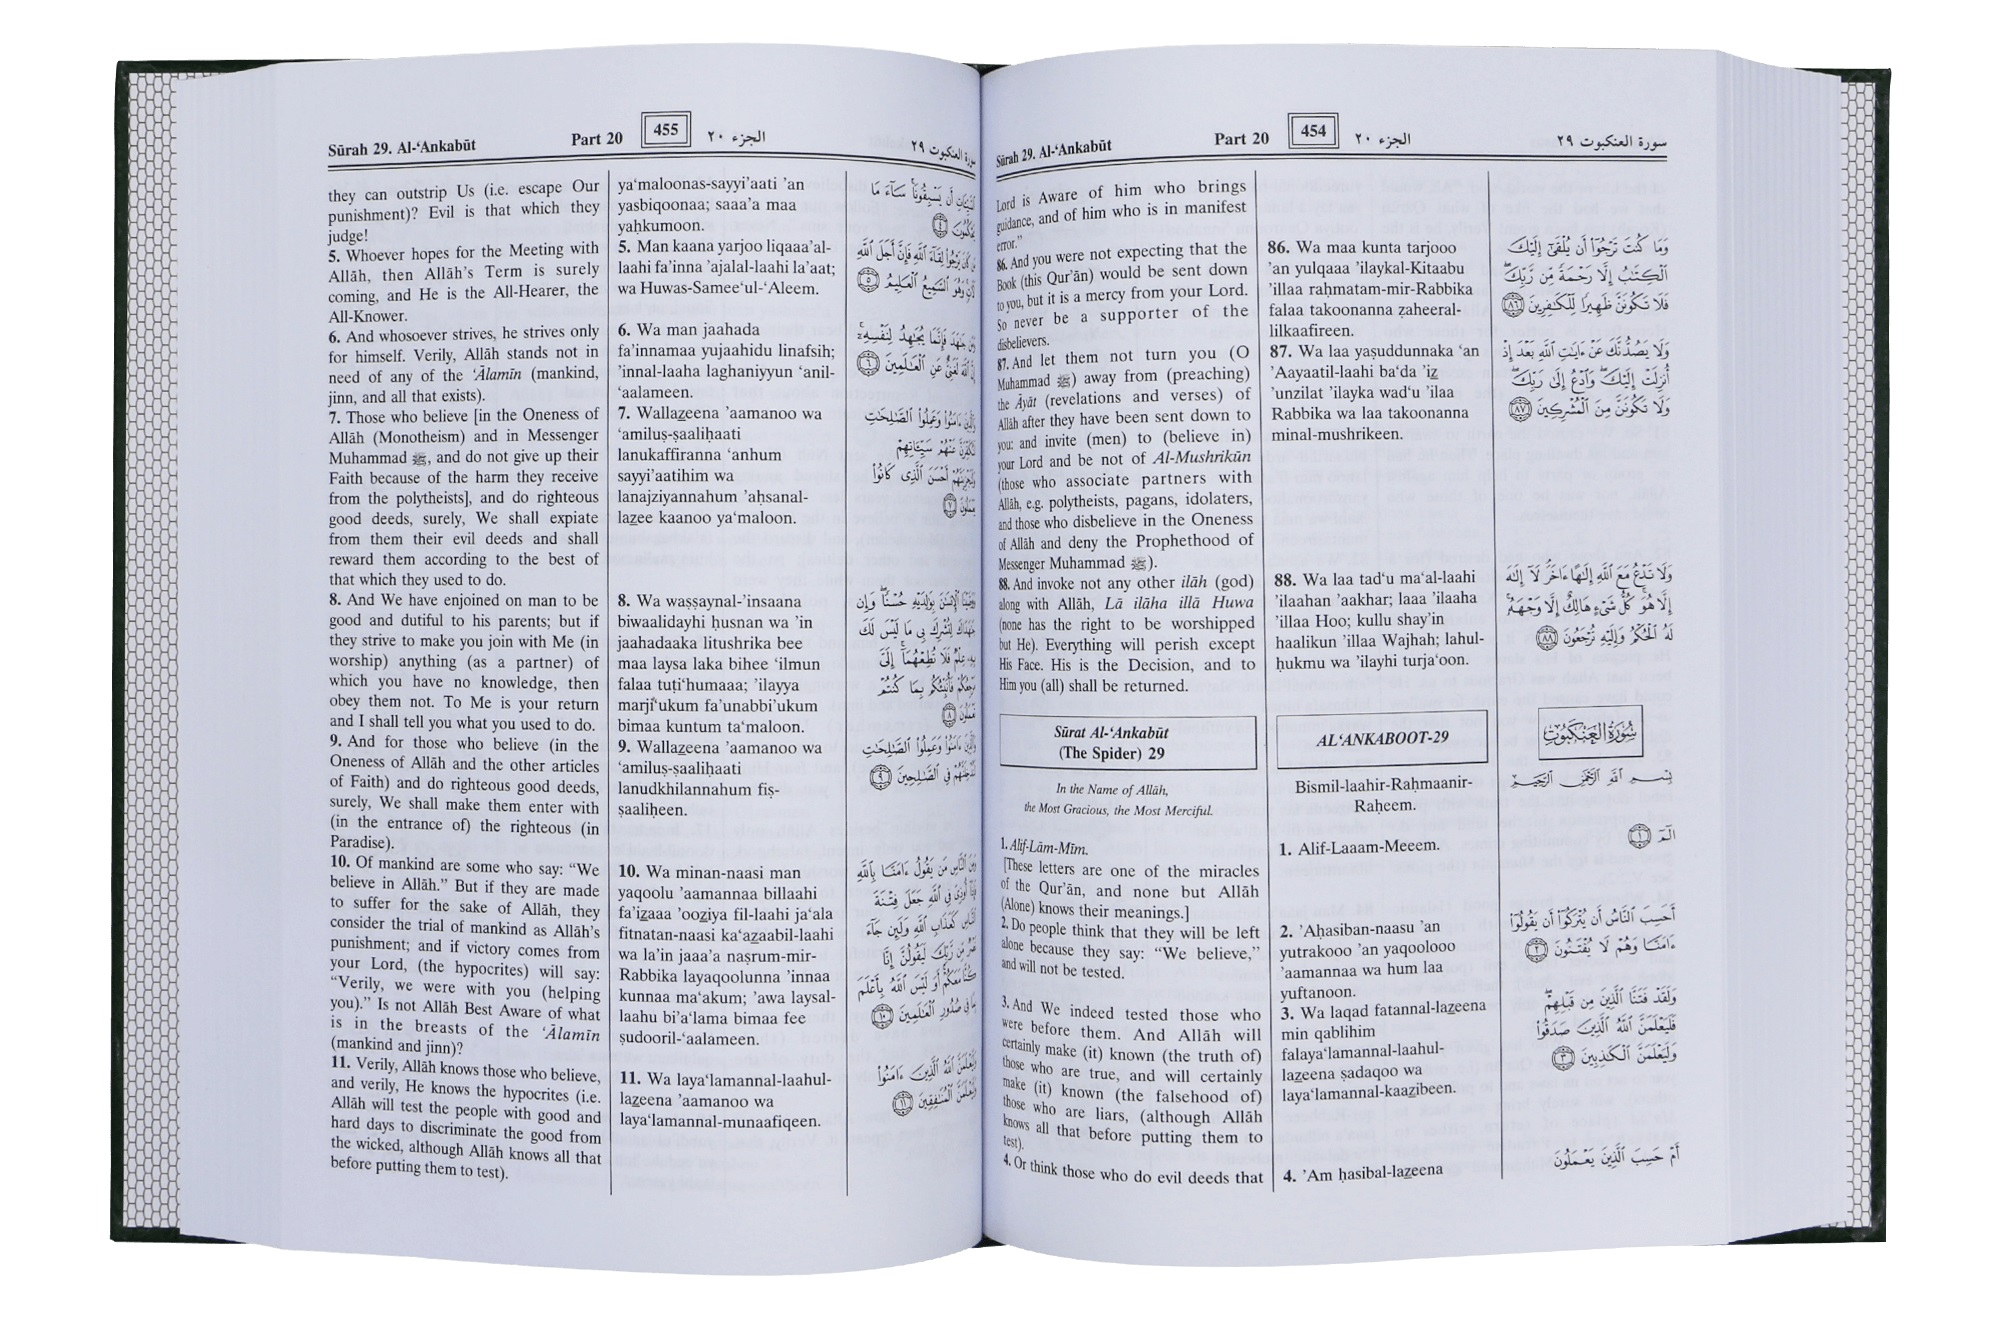 Sūrah 29. Al-‘Ankabūt
Part 20
454
الجزء ٢٠
سورة العنكبوت ٢٩
Lord is Aware of him who brings
guidance, and of him who is in manifest
error.”
86. And you were not expecting that the
Book (this Qur’ān) would be sent down
to you, but it is a mercy from your Lord.
So never be a supporter of the
disbelievers.
87. And let them not turn you (O
Muhammad ﷺ) away from (preaching)
the Āyāt (revelations and verses) of
Allāh after they have been sent down to
you: and invite (men) to (believe in)
your Lord and be not of Al-Mushrikūn
(those who associate partners with
Allāh, e.g. polytheists, pagans, idolaters,
and those who disbelieve in the Oneness
of Allāh and deny the Prophethood of
Messenger Muhammad ﷺ).
88. And invoke not any other ilāh (god)
along with Allāh, Lā ilāha illā Huwa
(none has the right to be worshipped
but He). Everything will perish except
His Face. His is the Decision, and to
Him you (all) shall be returned.
Sūrat Al-‘Ankabūt
(The Spider) 29
In the Name of Allāh,
the Most Gracious, the Most Merciful.
1. Alif-Lām-Mīm.
[These letters are one of the miracles
of the Qur’ān, and none but Allāh
(Alone) knows their meanings.]
2. Do people think that they will be left
alone because they say: “We believe,”
and will not be tested.
3. And We indeed tested those who
were before them. And Allāh will
certainly make (it) known (the truth of)
those who are true, and will certainly
make (it) known (the falsehood of)
those who are liars, (although Allāh
knows all that before putting them to
test).
4. Or think those who do evil deeds that
86. Wa maa kunta tarjooo
’an yulqaaa ’ilaykal-Kitaabu
’illaa raḥmatam-mir-Rabbika
falaa takoonanna ẓaheeral-
lilkaafireen.
87. Wa laa yaṣuddunnaka ‘an
’Aayaatil-laahi ba‘da ’iz
’unzilat ’ilayka wad‘u ’ilaa
Rabbika wa laa takoonanna
minal-mushrikeen.
88. Wa laa tad‘u ma‘al-laahi
’ilaahan ’aakhar; laaa ’ilaaha
’illaa Hoo; kullu shay’in
haalikun ’illaa Wajhah; lahul-
ḥukmu wa ’ilayhi turja‘oon.
AL‘ANKABOOT-29
Bismil-laahir-Raḥmaanir-
Raḥeem.
1. Alif-Laaam-Meeem.
2. ’Aḥasiban-naasu ’an
yutrakooo ’an yaqoolooo
’aamannaa wa hum laa
yuftanoon.
3. Wa laqad fatannal-lazeena
min qablihim
falaya‘lamannal-laahul-
lazeena ṣadaqoo wa
laya‘lamannal-kaazibeen.
4. ’Am ḥasibal-lazeena
وَمَا كُنتَ تَرْجُوٓا۟ أَن يُلْقَىٰٓ إِلَيْكَ
ٱلْكِتَـٰبُ إِلَّا رَحْمَةً مِّن رَّبِّكَ ۖ
فَلَا تَكُونَنَّ ظَهِيرًا لِّلْكَـٰفِرِينَ ٨٦
وَلَا يَصُدُّنَّكَ عَنْ ءَايَـٰتِ ٱللَّهِ بَعْدَ إِذْ
أُنزِلَتْ إِلَيْكَ ۖ وَٱدْعُ إِلَىٰ رَبِّكَ ۖ
وَلَا تَكُونَنَّ مِنَ ٱلْمُشْرِكِينَ ٨٧
وَلَا تَدْعُ مَعَ ٱللَّهِ إِلَـٰهًا ءَاخَرَ ۘ لَآ إِلَـٰهَ
إِلَّا هُوَ ۚ كُلُّ شَىْءٍ هَالِكٌ إِلَّا وَجْهَهُۥ ۚ
لَهُ ٱلْحُكْمُ وَإِلَيْهِ تُرْجَعُونَ ٨٨
سُورَةُ العَنكَبُوتِ
بِسْمِ ٱللَّهِ ٱلرَّحْمَـٰنِ ٱلرَّحِيمِ
الٓمٓ ١
أَحَسِبَ ٱلنَّاسُ أَن يُتْرَكُوٓا۟ أَن يَقُولُوٓا۟
ءَامَنَّا وَهُمْ لَا يُفْتَنُونَ ٢
وَلَقَدْ فَتَنَّا ٱلَّذِينَ مِن قَبْلِهِمْ ۖ
فَلَيَعْلَمَنَّ ٱللَّهُ ٱلَّذِينَ صَدَقُوا۟
وَلَيَعْلَمَنَّ ٱلْكَـٰذِبِينَ ٣
أَمْ حَسِبَ ٱلَّذِينَ يَعْمَلُونَ
Sūrah 29. Al-‘Ankabūt
Part 20
455
الجزء ٢٠
سورة العنكبوت ٢٩
they can outstrip Us (i.e. escape Our
punishment)? Evil is that which they
judge!
5. Whoever hopes for the Meeting with
Allāh, then Allāh’s Term is surely
coming, and He is the All-Hearer, the
All-Knower.
6. And whosoever strives, he strives only
for himself. Verily, Allāh stands not in
need of any of the ‘Ālamīn (mankind,
jinn, and all that exists).
7. Those who believe [in the Oneness of
Allāh (Monotheism) and in Messenger
Muhammad ﷺ, and do not give up their
Faith because of the harm they receive
from the polytheists], and do righteous
good deeds, surely, We shall expiate
from them their evil deeds and shall
reward them according to the best of
that which they used to do.
8. And We have enjoined on man to be
good and dutiful to his parents; but if
they strive to make you join with Me (in
worship) anything (as a partner) of
which you have no knowledge, then
obey them not. To Me is your return
and I shall tell you what you used to do.
9. And for those who believe (in the
Oneness of Allāh and the other articles
of Faith) and do righteous good deeds,
surely, We shall make them enter with
(in the entrance of) the righteous (in
Paradise).
10. Of mankind are some who say: “We
believe in Allāh.” But if they are made
to suffer for the sake of Allāh, they
consider the trial of mankind as Allāh’s
punishment; and if victory comes from
your Lord, (the hypocrites) will say:
“Verily, we were with you (helping
you).” Is not Allāh Best Aware of what
is in the breasts of the ‘Ālamīn
(mankind and jinn)?
11. Verily, Allāh knows those who believe,
and verily, He knows the hypocrites (i.e.
Allāh will test the people with good and
hard days to discriminate the good from
the wicked, although Allāh knows all that
before putting them to test).
ya‘maloonas-sayyi’aati ’an
yasbiqoonaa; saaa’a maa
yaḥkumoon.
5. Man kaana yarjoo liqaaa’al-
laahi fa’inna ’ajalal-laahi la’aat;
wa Huwas-Samee‘ul-‘Aleem.
6. Wa man jaahada
fa’innamaa yujaahidu linafsih;
’innal-laaha laghaniyyun ‘anil-
‘aalameen.
7. Wallazeena ’aamanoo wa
‘amiluṣ-ṣaaliḥaati
lanukaffiranna ‘anhum
sayyi’aatihim wa
lanajziyannahum ’aḥsanal-
lazee kaanoo ya‘maloon.
8. Wa waṣṣaynal-’insaana
biwaalidayhi ḥusnan wa ’in
jaahadaaka litushrika bee
maa laysa laka bihee ‘ilmun
falaa tuṭi‘humaaa; ’ilayya
marji‘ukum fa’unabbi’ukum
bimaa kuntum ta‘maloon.
9. Wallazeena ’aamanoo wa
‘amiluṣ-ṣaaliḥaati
lanudkhilannahum fiṣ-
ṣaaliḥeen.
10. Wa minan-naasi man
yaqoolu ’aamannaa billaahi
fa’izaaa ’ooziya fil-laahi ja‘ala
fitnatan-naasi ka‘azaabil-laahi
wa la’in jaaa’a naṣrum-mir-
Rabbika layaqoolunna ’innaa
kunnaa ma‘akum; ’awa laysal-
laahu bi’a‘lama bimaa fee
ṣudooril-‘aalameen.
11. Wa laya‘lamannal-laahul-
lazeena ’aamanoo wa
laya‘lamannal-munaafiqeen.
أَن يَسْبِقُونَا ۚ سَآءَ مَا
يَحْكُمُونَ ٤
يَرْجُوا۟ لِقَآءَ ٱللَّهِ فَإِنَّ أَجَلَ ٱللَّهِ
وَهُوَ ٱلسَّمِيعُ ٱلْعَلِيمُ ٥
جَـٰهَدَ فَإِنَّمَا يُجَـٰهِدُ لِنَفْسِهِۦٓ ۚ
إِنَّ ٱللَّهَ لَغَنِىٌّ عَنِ ٱلْعَـٰلَمِينَ ٦
ءَامَنُوا۟ وَعَمِلُوا۟ ٱلصَّـٰلِحَـٰتِ
عَنْهُمْ سَيِّـَٔاتِهِمْ
أَحْسَنَ ٱلَّذِى كَانُوا۟
٧
ٱلْإِنسَـٰنَ بِوَٰلِدَيْهِ حُسْنًا ۖ وَإِن
لِتُشْرِكَ بِى مَا لَيْسَ لَكَ
بِهِۦ عِلْمٌ فَلَا تُطِعْهُمَآ ۚ إِلَىَّ
فَأُنَبِّئُكُم بِمَا كُنتُمْ
٨
ءَامَنُوا۟ وَعَمِلُوا۟ ٱلصَّـٰلِحَـٰتِ
فِى ٱلصَّـٰلِحِينَ ٩
ٱلنَّاسِ مَن يَقُولُ ءَامَنَّا بِٱللَّهِ
أُوذِىَ فِى ٱللَّهِ جَعَلَ فِتْنَةَ
ٱلنَّاسِ كَعَذَابِ ٱللَّهِ وَلَئِن جَآءَ
مِّن رَّبِّكَ لَيَقُولُنَّ إِنَّا
مَعَكُمْ ۚ أَوَلَيْسَ ٱللَّهُ بِأَعْلَمَ
فِى صُدُورِ ٱلْعَـٰلَمِينَ ١٠
ٱللَّهُ ٱلَّذِينَ ءَامَنُوا۟
ٱلْمُنَـٰفِقِينَ ١١